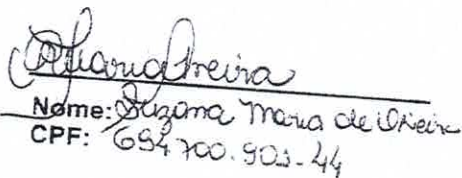 Nome: Suzana Maria de Oliveira
CPF: 694.700.903-44